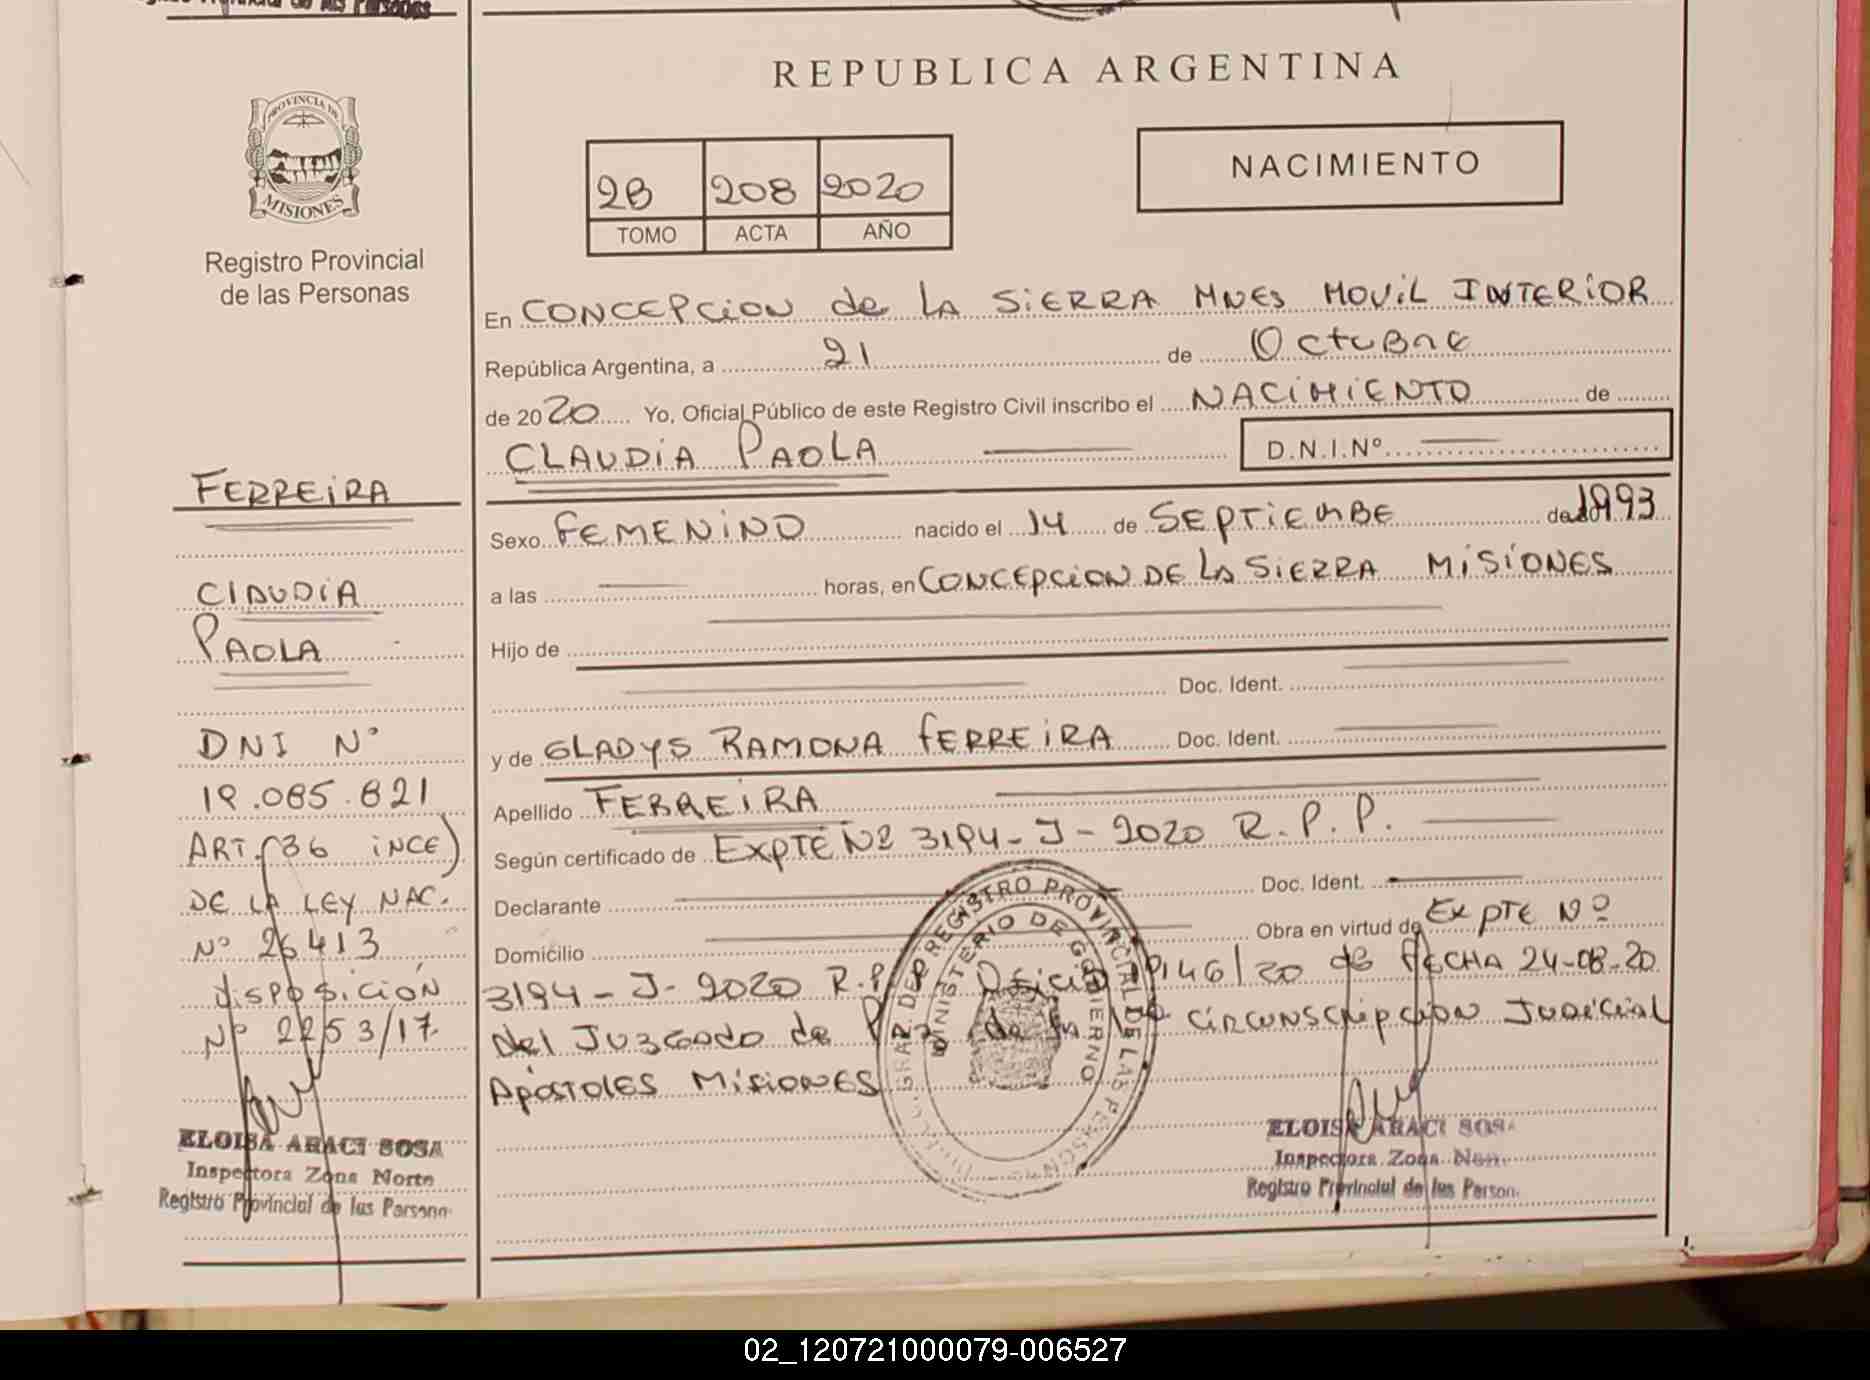 PROVINCIA DE
MISIONES
Registro Provincial
de las Personas
FERREIRA
CLAUDIA
PAOLA
DNI Nº
19.085.821
ART. (36 INCE)
DE LA LEY NAC.
Nº 26413
DISPOSICIÓN
Nº 2253/17.
ELOISA ARACI SOSA
Inspectora Zona Norte
Registro Provincial de las Person
REPUBLICA ARGENTINA
2B 208 2020
TOMO ACTA AÑO
NACIMIENTO
En CONCEPCION de LA SIERRA MNES MOVIL INTERIOR
República Argentina, a 21 de Octubre
de 2020 Yo, Oficial Público de este Registro Civil inscribo el NACIMIENTO de
CLAUDIA PAOLA D.N.I.Nº
Sexo FEMENINO nacido el 14 de SEPTIEMBE de 1993
a las horas, en CONCEPCION DE LA SIERRA MISIONES
Hijo de
Doc. Ident.
y de GLADYS RAMONA FERREIRA Doc. Ident.
Apellido FERREIRA
Según certificado de EXPTE Nº 3194-J-2020 R.P.P.
Declarante Doc. Ident.
Domicilio Obra en virtud de EXPTE Nº
3194-J-2020 R.P.P. Oficio 46/20 de FECHA 24-08-20
del JUZGADO de de circunscripcion Judicial
APOSTOLES MISIONES
REGISTRO PROVINCIAL DE LAS PERSON
MINISTERIO DE GOBIERNO
ELOISA ARACI SOSA
Inspectora Zona Nor
Registro Provincial de las Person
02_120721000079-006527